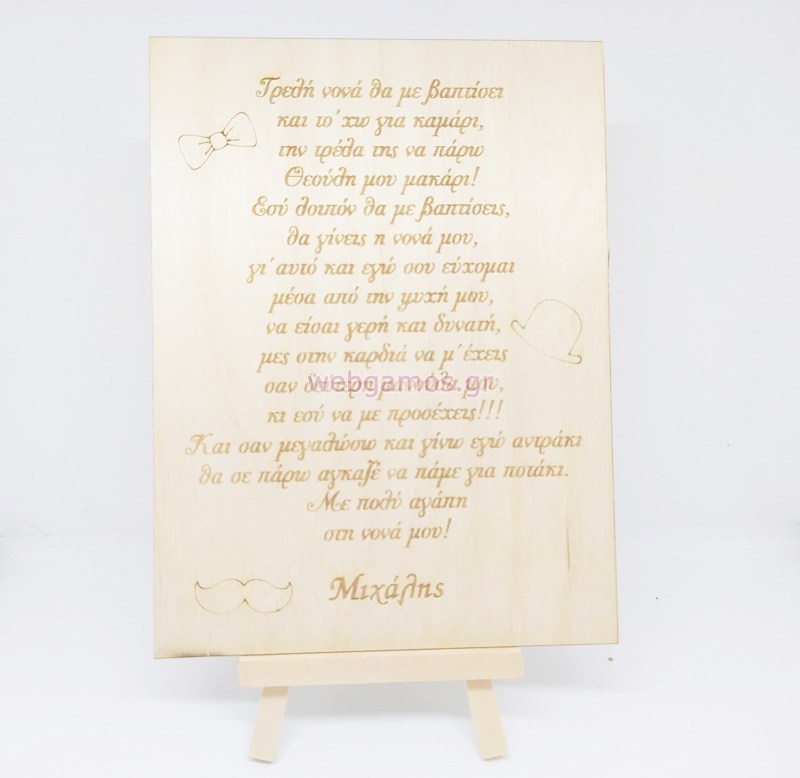 Τρελή νονά θα με βαπτίσει
και το΄χω για καμάρι,
την τρέλα της να πάρω
Θεούλη μου μακάρι!
Εσύ λοιπόν θα με βαπτίσεις,
θα γίνεις η νονά μου,
γι΄αυτό και εγώ σου εύχομαι
μέσα από την ψυχή μου,
να είσαι γερή και δυνατή,
μες στην καρδιά να μ΄έχεις
σαν μου,
webgamos.gr
κι εσύ να με προσέχεις!!!
Και σαν μεγαλώσω και γίνω εγώ αντράκι
θα σε πάρω αγκαζέ να πάμε για ποτάκι.
Με πολύ αγάπη
στη νονά μου!
Μιχάλης